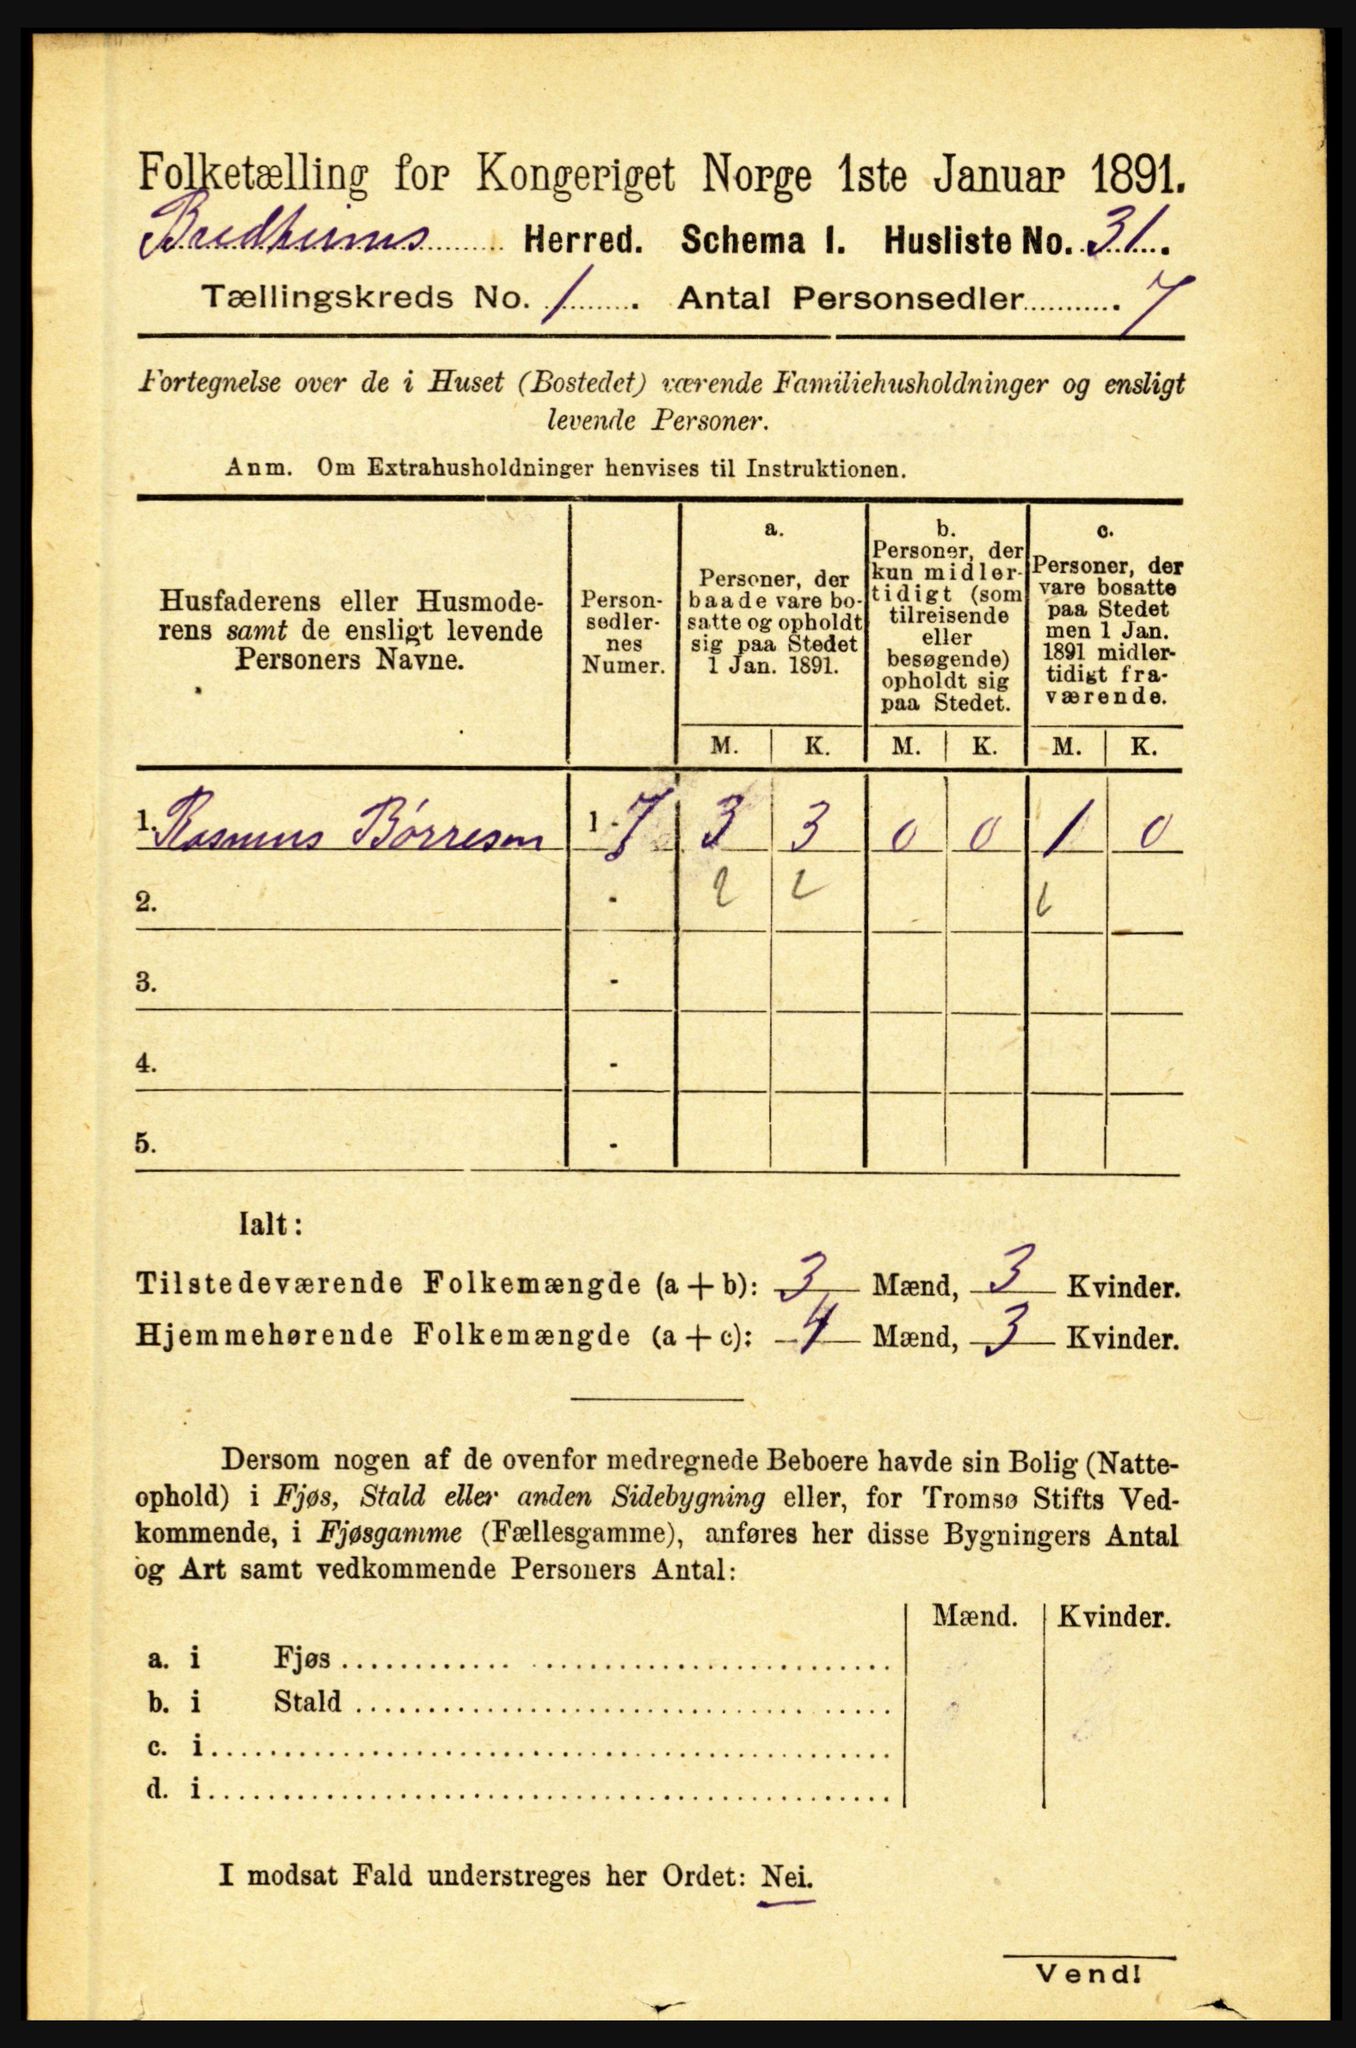 Folketælling for Kongeriget Norge 1ste Januar 1891.
Bredheims Herred. Schema I. Husliste No. 31.
Tællingskreds No. 1. Antal Personsedler 7
Fortegnelse over de i Huset (Bostedet) værende Familiehusholdninger og ensligt
levende Personer.
Anm. Om Extrahusholdninger henvises til Instruktionen.
Husfaderens eller Husmode-
rens samt de ensligt levende
Personers Navne.
Person-
sedler-
nes
Numer.
a.
Personer, der
baade vare bo-
satte og opholdt
sig paa Stedet
1 Jan. 1891.
b.
Personer, der
kun midler-
tidigt (som
tilreisende
eller
besøgende)
opholdt sig
paa Stedet.
c.
Personer, der
vare bosatte
paa Stedet
men 1 Jan.
1891 midler-
tidigt fra-
værende.
M. K. M. K. M. K.
1. Rasmus Børresen 1 - 7 3 3 0 0 1 0
2. -
3. -
4. -
5. -
Ialt:
Tilstedeværende Folkemængde (a + b): 3 Mænd, 3 Kvinder.
Hjemmehørende Folkemængde (a + c): 4 Mænd, 3 Kvinder.
Dersom nogen af de ovenfor medregnede Beboere havde sin Bolig (Natte-
ophold) i Fjøs, Stald eller anden Sidebygning eller, for Tromsø Stifts Ved-
kommende, i Fjøsgamme (Fællesgamme), anføres her disse Bygningers Antal
og Art samt vedkommende Personers Antal:
Mænd. Kvinder.
a. i Fjøs
b. i Stald
c. i
d. i
I modsat Fald understreges her Ordet: Nei.
Vend!